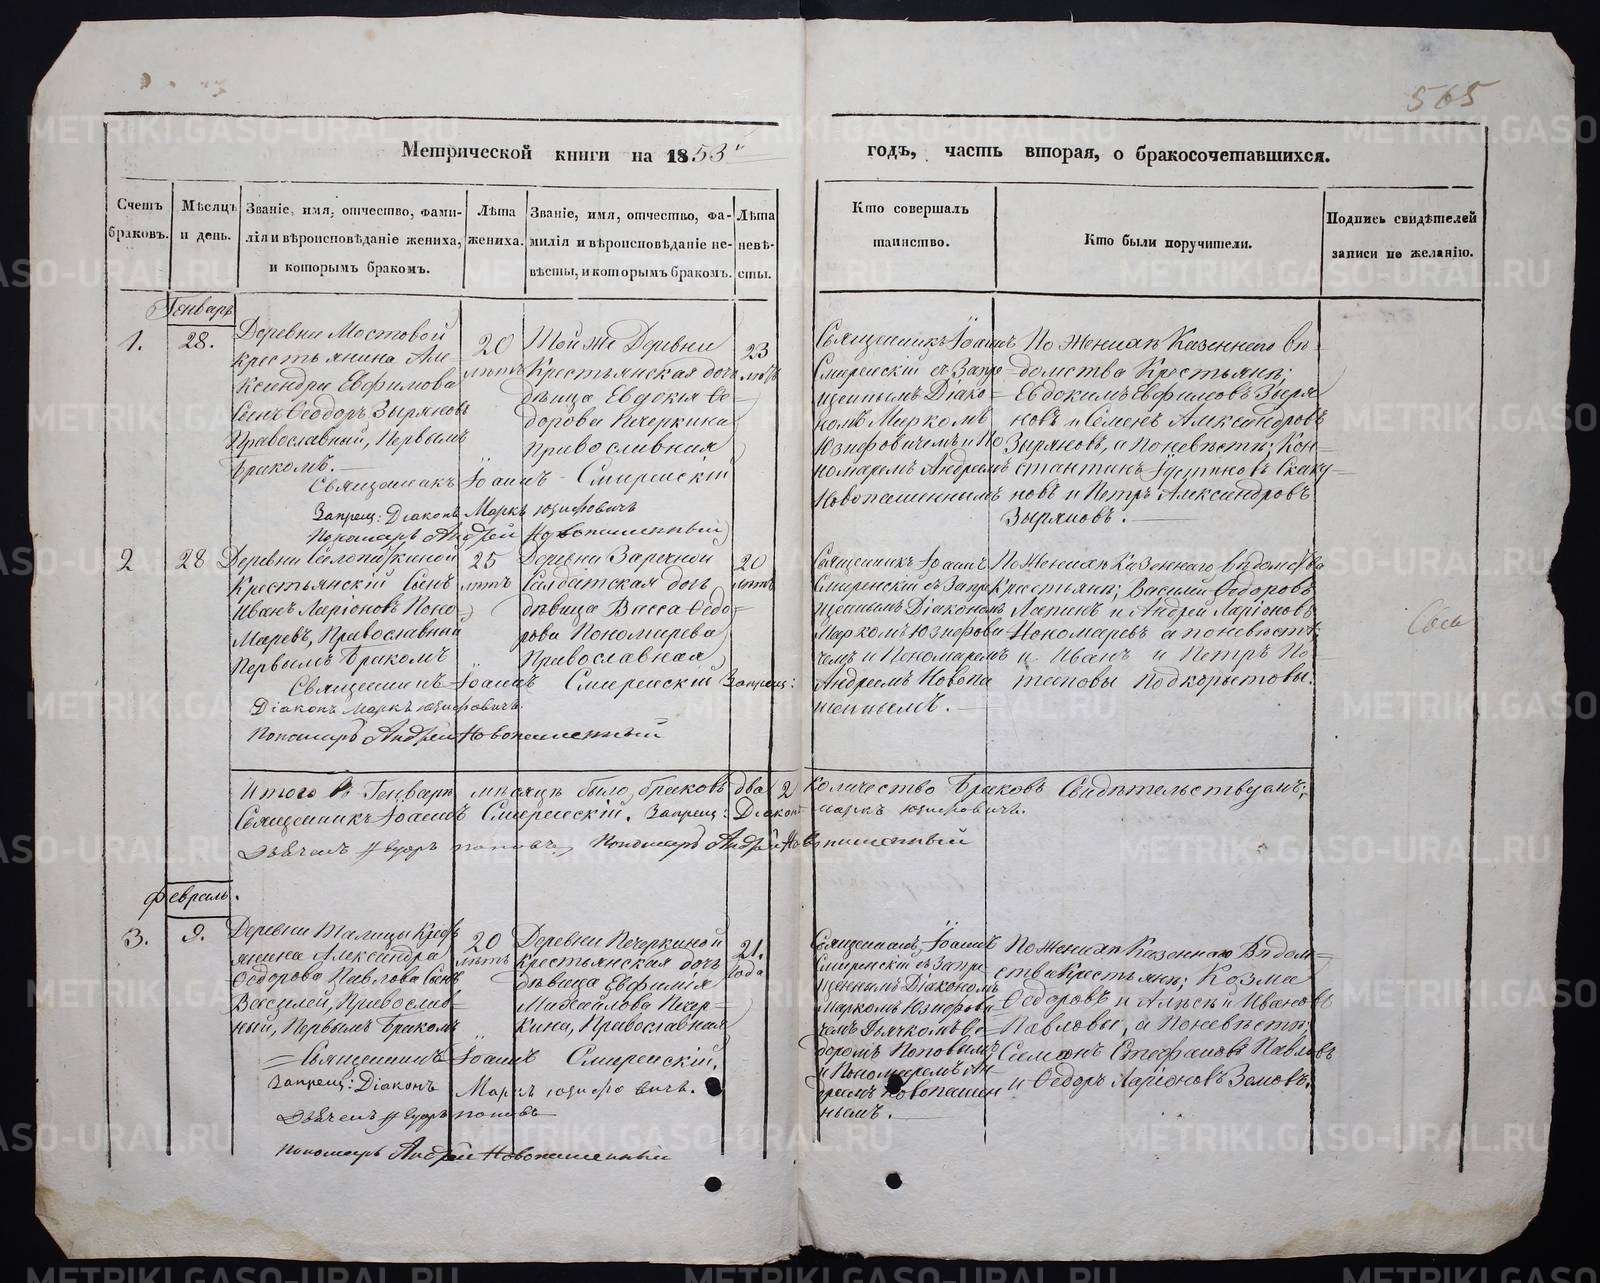 565
Метрической книги на 1853
годъ, часть вторая, о бракосочетавшихся.
Счетъ браковъ.
Мѣсяцъ и день.
Званіе, имя, отчество, фами-
лія и вѣроисповѣданіе жениха,
и которымъ бракомъ.
Лѣта
жениха.
Званіе, имя, отчество, фа-
милія и вѣроисповѣданіе не-
вѣсты, и которымъ бракомъ.
Лѣта
невѣ-
сты.
Кто совершалъ
таинство.
Кто были поручители.
Подпись свидѣтелей
записи по желанію.
Генварь
1.
28.
Деревни Мостовой
крестьянина Але-
ксандра Евфимова
Сынъ Ѳеодоръ Зыряновъ
Православный, Первымъ
бракомъ.
20
лѣтъ
Той же Деревни
Крестьянская дочь
дѣвица Евдокія Ѳе-
дорова Печеркина
Православная
23
лѣтъ
Священникъ Іоаннъ
Смиренскій съ Запре-
щеннымъ Діако-
номъ Маркомъ
Юзифовичемъ и По
номаремъ Андреемъ
Новопашеннымъ
По Женихѣ Казеннаго вѣ-
домства Крестьяне;
Евдокимъ Евфимовъ Зыря
новъ и Семенъ Александровъ
Зыряновъ, а по невѣстѣ; Кон-
стантинъ Іустиновъ Скаку
новъ и Петръ Александровъ
Зыряновъ.
Священникъ Іоаннъ Смиренскій
Запрещ: Діаконъ Маркъ Юзифовичъ
Пономарь Андрей Новопашенный
2
28
Деревни
Крестьянскій Сынъ
Иванъ Ларіоновъ Поно-
маревъ, Православный
Первымъ бракомъ
25
лѣтъ
Деревни Заречной
Солдатская дочь
дѣвица Васса Ѳедо-
рова Пономарева
Православная
20
лѣтъ
Священникъ Іоаннъ
Смиренскій съ Запре
щеннымъ Діакономъ
Маркомъ Юзифови
чемъ и Пономаремъ
Андреемъ Новопа
шеннымъ.
По Женихѣ Казеннаго вѣдомства
Крестьяне; Василій Ѳедоровъ
Лапинъ и Андрей Ларіоновъ
Пономаревъ а по невѣстѣ
Иванъ и Петръ По-
таповы Подкорытовы.
Священникъ Іоаннъ Смиренскій Запрещ:
Діаконъ Маркъ Юзифовичъ
Пономарь Андрей Новопашенный
Итого въ Генварѣ мѣсяцѣ было браковъ два 2 Количество браковъ Свидѣтельствуемъ;
Священникъ Іоаннъ Смиренскій. Запрещ: Діаконъ Маркъ Юзифовичъ.
Дьячекъ Ѳедоръ Поповъ, Пономарь Андрей Новопашенный
Февраль.
3.
9.
Деревни Талицы Кресть
янина Александра
Ѳедорова Павлова Сынъ
Василей, Православ-
ный, Первымъ бракомъ
20
лѣтъ
Деревни Печеркиной
Крестьянская дочь
дѣвица Евфимія
Михайлова Печер-
кина, Православная
21.
года
Священникъ Іоаннъ
Смиренскій съ Запре
щеннымъ Діакономъ
Маркомъ Юзифови
чемъ Дьячкомъ Ѳе-
доромъ Поповымъ
и Пономаремъ Ан
дреемъ Новопашен
нымъ.
По Женихѣ Казеннаго Вѣдом-
ства Крестьяне; Козма
Ѳедоровъ и Алексѣй Ивановъ
Павловы, а По невѣстѣ;
Симеонъ Стефановъ Павловъ
и Ѳедоръ Ларіоновъ Земовъ.
Священникъ Іоаннъ Смиренскій.
Запрещ: Діаконъ Маркъ Юзифовичъ.
Дьячекъ Ѳедоръ Поповъ
Пономарь Андрей Новопашенный
METRIKI.GASO-URAL.RU